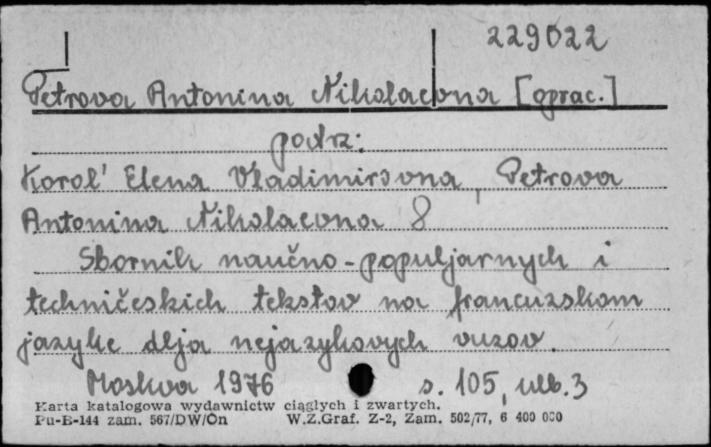 229022
Petrova Antonina Nikolaevna [oprac.]
patrz:
Korol' Elena Vladimirovna, Petrova
Antonina Nikolaevna 8
Sbornik naučno-populjarnych i
techničeskich tekstov na francuzskom
jazyke dlja nejazykovych vuzov.
Moskva 1976 s. 105, nlb. 3
Karta katalogowa wydawnictw ciągłych i zwartych.
Pu-B-144 zam. 567/DW/On W.Z.Graf. Z-2, Zam. 502/77, 6 400 000